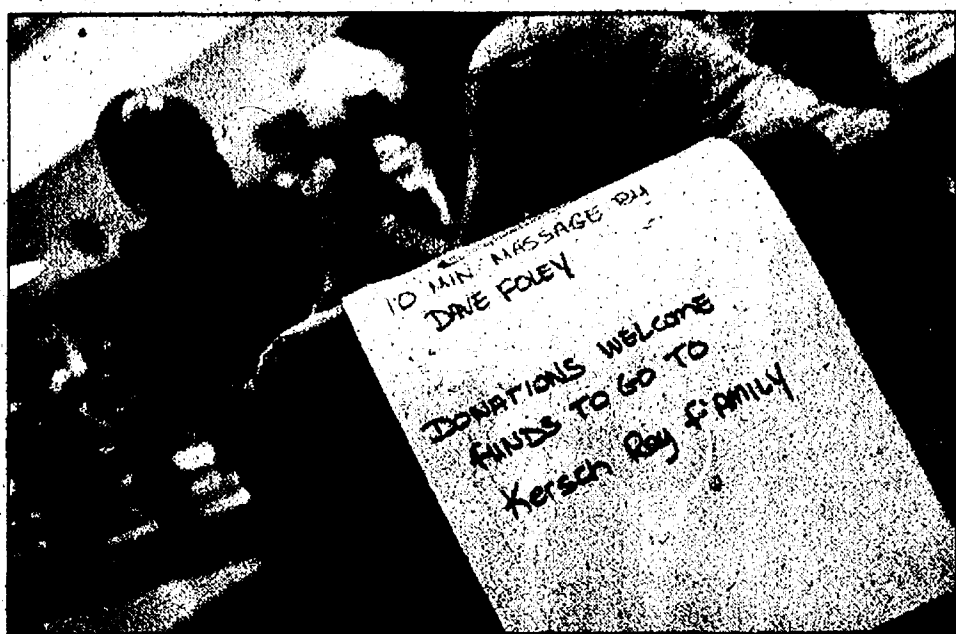 10 MIN MASSAGE BY
DAVE FOLEY
DONATIONS WELCOME
FUNDS TO GO TO
Kersch Ray FAMILY